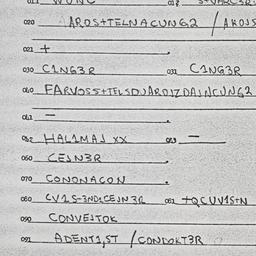 020 AROS+TELNACUNG2 / AKOJS
021 +
030 C1NG3R 031 C1NG3R
040 FARVOSS+TELSDUAROIZDAJNCUNG2
041 –
042 HAL1MAJ XX 043 –
060 CEJN3R
070 CONONACON
080 CV1S-3NDICEJN3R 081 +QCUV1S+N
090 CONVEJTOK
091 ADENT1,ST / CONDOKT3R